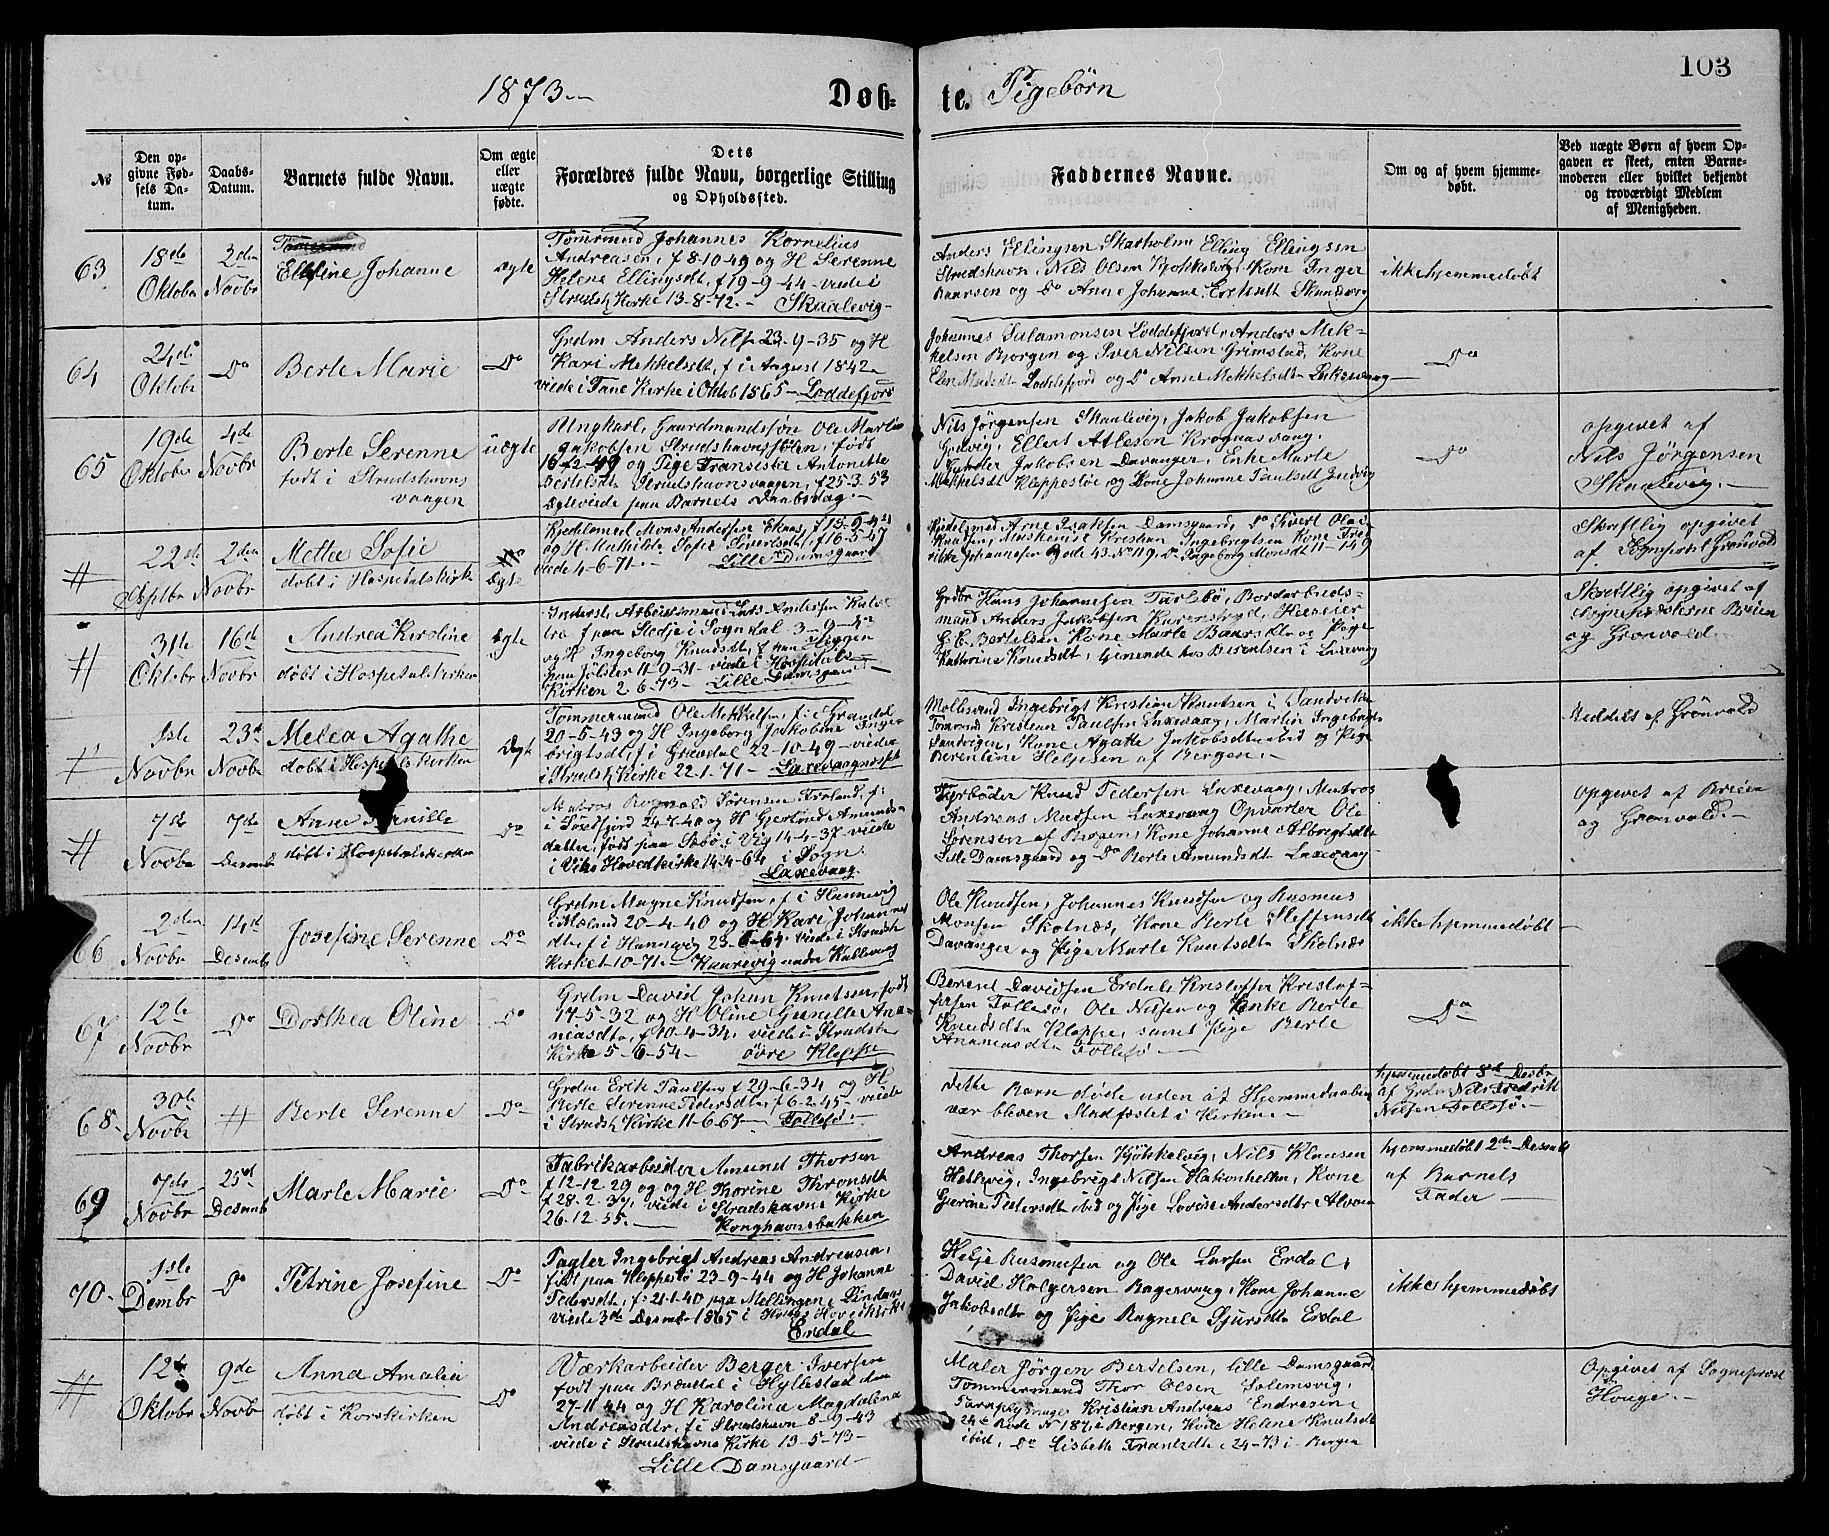 103
1873
Döb-
te. Pigebörn
№
Den op-
givne Fød-
sels Da-
tum.
Daabs-
Datum.
Barnets fulde Navn.
Om ægte
eller
uægte
fødte.
Dets
Forældres fulde Navn, borgerlige Stilling
og Opholdssted.
Faddernes Navne.
Om og af hvem hjemme-
døbt.
Ved uægte Børn af hvem Op-
gaven er skeet, enten Barne-
moderen eller hvilket bekjendt
og troværdigt Medlem
af Menigheden.
63
18de
Oktober
2den
Novbr
Elefine Johanne
Ægte
Tømrmnd Johannes Kornelius
Andreasen, f 8-10-49 og H Serenne
Helene Ellingsdt, f 19-9-44 viede i
Strudsh Kirke 13-8-72 Skaalevig
Anders Ellingsen Skarholm Elling Ellingsen
Strudshavn, Nils Olsen Kjøkkelvig, Kone Inger
Baarsen og Do Anne Johanne
ikke hjemmedøbt
64
24de
Oktobr
Do
Berte Marie
Do
Grdm Anders Nilsen 23-9-35 og H
Kari Mekkelsdt, f i August 1842
viede i Fane Kirke i Oktob 1865 Loddefjord
Johannes Salamonsen Loddefjord, Anders Mek-
kelsen Bjorgen og Iver Nilsen Grimstad, Kone
Loddefjord og Do Anne Mekkelsdt
Do
65
19de
Oktobr
4de
Novbr
Berte Serenne
født i Strudshavns
vaagen
uægte
Ungkarl, Gaardmandssøn Ole Martin
Jakobsen Strudshavn, født
16-12-49 og Pige Fransiske Antonette
Bertelsdt Strudshavnsvaagen, f 25-3-53
Ægteviede paa Barnets Daabsdag.
Nils Jörgensen Skaalevig, Jakob Jakobsen
Ellert Atlesen Krognasvaag,
Jakobsen Davanger, Enke Marte
Mekkelsdt Kleppestø og Kone Johanne Paulsdt
Do
opgivet af
Nils Jörgensen
Skaalevig.
#
22de
Septbr
2den
Novbr
Mette Sofie
døbt i Hospetalskirke
Ægte
Mons Andersen f 15-9-42
og H Mathilde Sofie Sivertsdt, f 16-5-47
viede 4-6-71. Lille Damsgaard
Arne Isaksen Damsgaard, Do Sivert Olai
Knudsen, Maskinist Kristian Ingebrigtsen Kone
Johannesen Rode 43 No 119, Do Ingeborg Monsdt 11-149
Skriftlig opgivet
af Sognepræst Grönvold
#
31te
Oktobr
16de
Novbr
Andrea Karoline
døbt i Hospetalskirken
Ægte
Inderst, Arbeidsmand Lars Andersen
f paa Stedje i Sogndal 3-9-
og H Ingeborg Knudsdt, f paa
paa Jölster 11-9-31 viede i Hospetals
Kirken 2-6-73 Lille Damsgaard
Grdbr Hans Johannesen Bordarbeids-
mand Anders Jakobsen
Bertelsen Kone Marte Baarsdt og Pige
Kathrine Knudsdt, tjenende hos Berentsen i Laxevaag
Skriftlig opgivet af
Sognepræsterne Brien
og Grönvold.
#
1ste
Novbr
23de
Novbr
Melea Agathe
døbt i Hospetals Kirken
Ægte
Tømmermand Ole Mekkelsen, f i Grandal
20-5-43 og H Ingeborg Jakobine Inge-
brigtsdt, f i Grevdal 22-10-49 viede
i Strudsh Kirke 22-1-71 Laxevaag
Ingebrigt Kristian Knutsen i Sandviken
Tømrmnd Kristian Paulsen Laxevaag, Martin Ingebrigts
Sandvigen, Kone Agathe Jakobsdt ibid og Pige
Berentine Helgesen af Bergen.
Meddelt af Grönvold
#
7de
Novbr
7de
Desemb
Anne Pernille
døbt i Hospetalskirken
Do
Matros Rognald Sörensen Froland, f:
i Söndfjord 24-7-40 og H Gjertrud Amunds-
datter, født paa i Vig 14-4-37 viede
i Viks Hovedkirke 14-4-64 i Sogn.
Laxevaag
Fyrbøder Knud Pedersen Laxevaag, Matros
Andreas Madsen Laxevaag Opvarter Ole
Sörensen af Bergen, Kone Johanne Albregtsdt
Lille Damsgaard og Do Berte Amundsdt Laxevaag
Opgivet af Brien
og Grönvold.
66
2den
Novbr
14de
Desemb
Josefine Serenne
Do
Grdm Magne Knudsen, f i Hannevig
i Mæland 20-4-40 og H Kari Johannes
dt f i Hannevig 23-6-64 viede i Strudsh
Kirke 1-10-71 Haarevig under Kollevaag
Ole Knudsen, Johannes Knudsen og Rasmus
Monsen Skolnæs, Kone Berte Steffensdt
Davanger og Pige Marte Knutsdt Skolnæs
ikke hjemmedøbt
67
12te
Novbr
Do
Dorthea Oline
Do
Grdm David Johan Knutsen, født
17-5-32 og H Oline Gunille Ana-
neasdt, f 10-4-34, viede i Strudsh
Kirke 5-6-54 øvre Kleppe
Berent Davidsen Erdale Kristoffer Kristof-
fersen Follesø, Ole Nilsen og Enke Berte
Knudsdt Kleppe, samt Pige Berte
Ananeasdt Follesø
Do
68
30te
Novbr
#
Berte Serenne
Do
Grdm Erik Paulsen f 29-6-34 og H
Berte Serenne Pedersdt, f 6-2-45 viede
i Strudsh Kirke 11-6-67 Follesø.
dette Barn døde uden at Hjemmedaaben
var bleven Stadfæstet i Kirken.
hjemmedøbt 8de Desbr
af Grdm Nils Fredrik
Nilsen Follesø.
69
7de
Novbr
25de
Desemb
Marte Marie
Do
Fabrikarbeider Amund Thorsen
f 12-12-29 og og H Thorine Thronsdt
f 28-2-37, viede i Strudshavns Kirke
26-12-55. Konghavnsbakken
Andreas Thorsen Kjøkkelvig, Nils Klausen
Hetlevig, Ingebrigt Nilsen Hakonhellen, Kone
Gjerine Pedersdt ibid og Pige Lovise Andersdtr Alvøen
hjemmedøbt 2den Desemb
af Barnets
Fader
70
1ste
Dembr
Do
Petrine Josefine
Do
Fagter Ingebrigt Andreas Andreasen,
født paa Kleppestø 23-9-44 og H Johanne
Pedersdt, f 21-1-40 paa Mellingen i Lindaas
viede 3de Desembr 1865 i Hovedkirke
Erdal
Helje Rasmussen og Ole Larsen Erdal,
David Holgersen Bagervaag, Kone Johanne
Jakobsdtr og Pige Ragnele Sjursdt Erdal
ikke hjemmedøbt
#
12te
Oktobr
9de
Novbr
Anna Amalia
døbt i Korskirken
Do
Værkarbeider Berger Iversen
født paa i Hyllestad den
27-11-44 og H Karolina Magdalena
Andreasdtr, f i Strudshavn 8-9-43
viede i Strudshavns Kirke 13-5-73
Lille Damsgaard
Maler Jörgen Bertelsen, lille Damsgaard
Tømmermand Thor Olsen Salemsvig,
Kristian Andreas Endresen
24de Rode No 187 i Bergen, Kone Helene Knutsdt
ibid, Do Lisbeth Frantsdt, 24-73 i Bergen
Opgivet af Sognepræst
Houge.